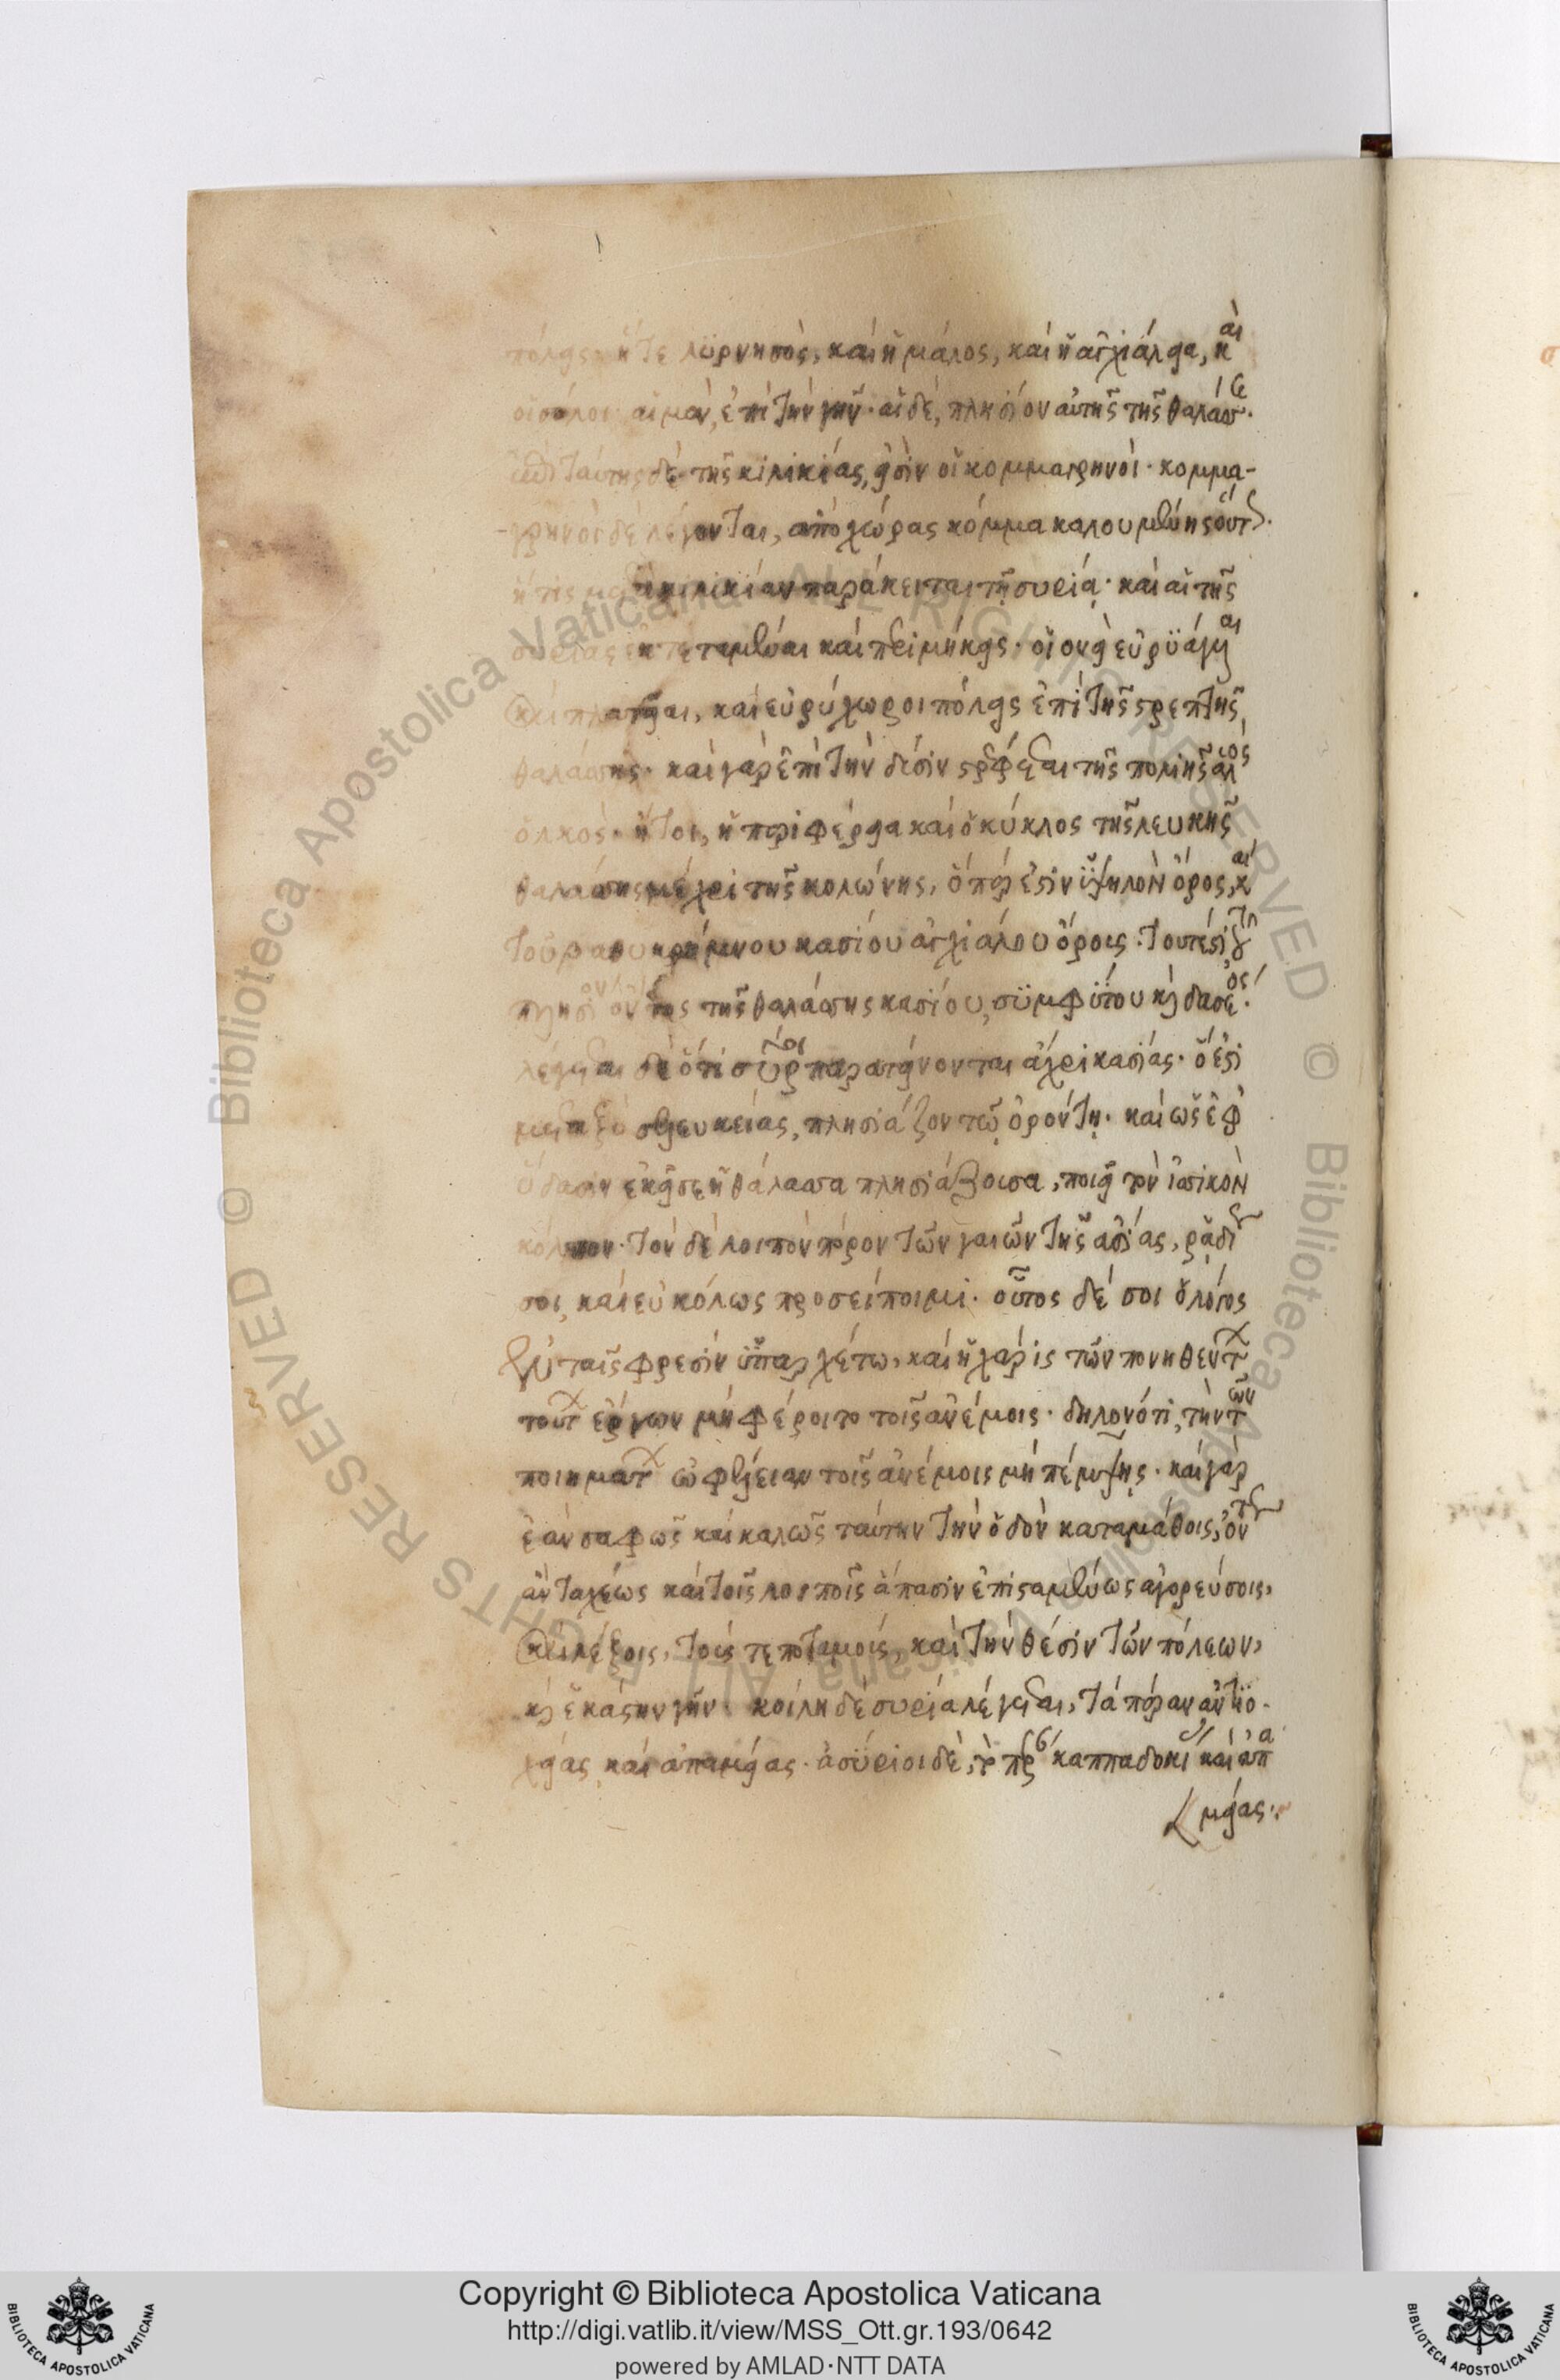 πόλεις· ἥτε λϋρνησὸς, καὶ ἡ μάλος, καὶ ἡ ἀγχιάλεια, καὶ
οἱ σόλοι· αἱ μὲν, ἐπὶ τὴν γῆν· αἱ δὲ, πλησίον αὐτῆς τῆς θαλάσσης·
ἐπὶ ταύτης δὲ τῆς κιλικίας, εἰσὶν οἱ κομμαγηνοὶ· κομμα-
-γηνοὶ δὲ λέγονται, ἀπὸ χώρας κόμμα καλουμένης οὕτως·
ἥτις μετὰ κιλικίαν παράκειται τῇ συρίᾳ· καὶ αἱ τῆς
συρίας ἐκτεταμέναι καὶ περιμήκεις· οἱονεὶ εὐρϋάγυιαι
καὶ πλατεῖαι, καὶ εὐρύχωροι πόλεις ἐπὶ τῆς στρεπτῆς
θαλάσσης· καὶ γὰρ ἐπὶ τὴν δύσιν στρέφεται τῆς πολιῆς ἁλὸς
ὁλκὸς· ἤτοι, ἡ περιφέρεια καὶ ὁ κύκλος τῆς λευκῆς
θαλάσσης μέχρι τῆς κολώνης, ὅπερ ἐστὶν ὑψηλὸν ὄρος, καὶ
τοῦ βαθυκρήμνου κασίου αἰγιάλου ὄρους· τουτέστι, τοῦ
πλησίον ὄντος τῆς θαλάσσης κασίου, συμφύτου καὶ δασέος·
λέγεται δὲ ὅτι σύροι παρατείνονται ἄχρι κασίας· ὅ ἐστι
μεταξὺ σελευκείας, πλησιάζον τῷ ὀρόντῃ· καὶ ὡς ἐφ'
ὕδασιν ἐκεῖσε ἡ θάλασσα πλησιάζουσα, ποιεῖ τὸν ἰσσικὸν
κόλπον· τὸν δὲ λοιπὸν πόρον τῶν γαιῶν τῆς ἀσίας, ῥᾳδίως
σοι, καὶ εὐκόλως προσείποιμι· οὗτος δέ σοι ὁ λόγος
ἐν ταῖς φρεσὶν ὑπαρχέτω, καὶ ἡ χάρις τῶν πονηθέντων
τούτων ἔργων μὴ φέροιτο τοῖς ἀνέμοις· δηλονότι, τὴν τῶν
ποιημάτων ὠφέλειαν τοῖς ἀνέμοις μὴ πέμψῃς· καὶ γὰρ
ἐὰν σαφῶς καὶ καλῶς ταύτην τὴν ὁδὸν καταμάθοις, ὄντως
ἂν ταχέως καὶ τοῖς λοιποῖς ἅπασιν ἐπισταμένως ἀγορεύσοις,
καὶ λέξοις, τούς τε ποταμοὺς, καὶ τὴν θέσιν τῶν πόλεων,
καὶ ἑκάστην γῆν· κοίλη δὲ συρία λέγεται, τὰ πέραν ἀντιο-
χείας καὶ ἀπαμείας· ἀσύριοι δὲ, οἱ πρὸς καππαδοκίαν καὶ ἀπα
μείας·
Copyright © Biblioteca Apostolica Vaticana
http://digi.vatlib.it/view/MSS_Ott.gr.193/0642
powered by AMLAD·NTT DATA